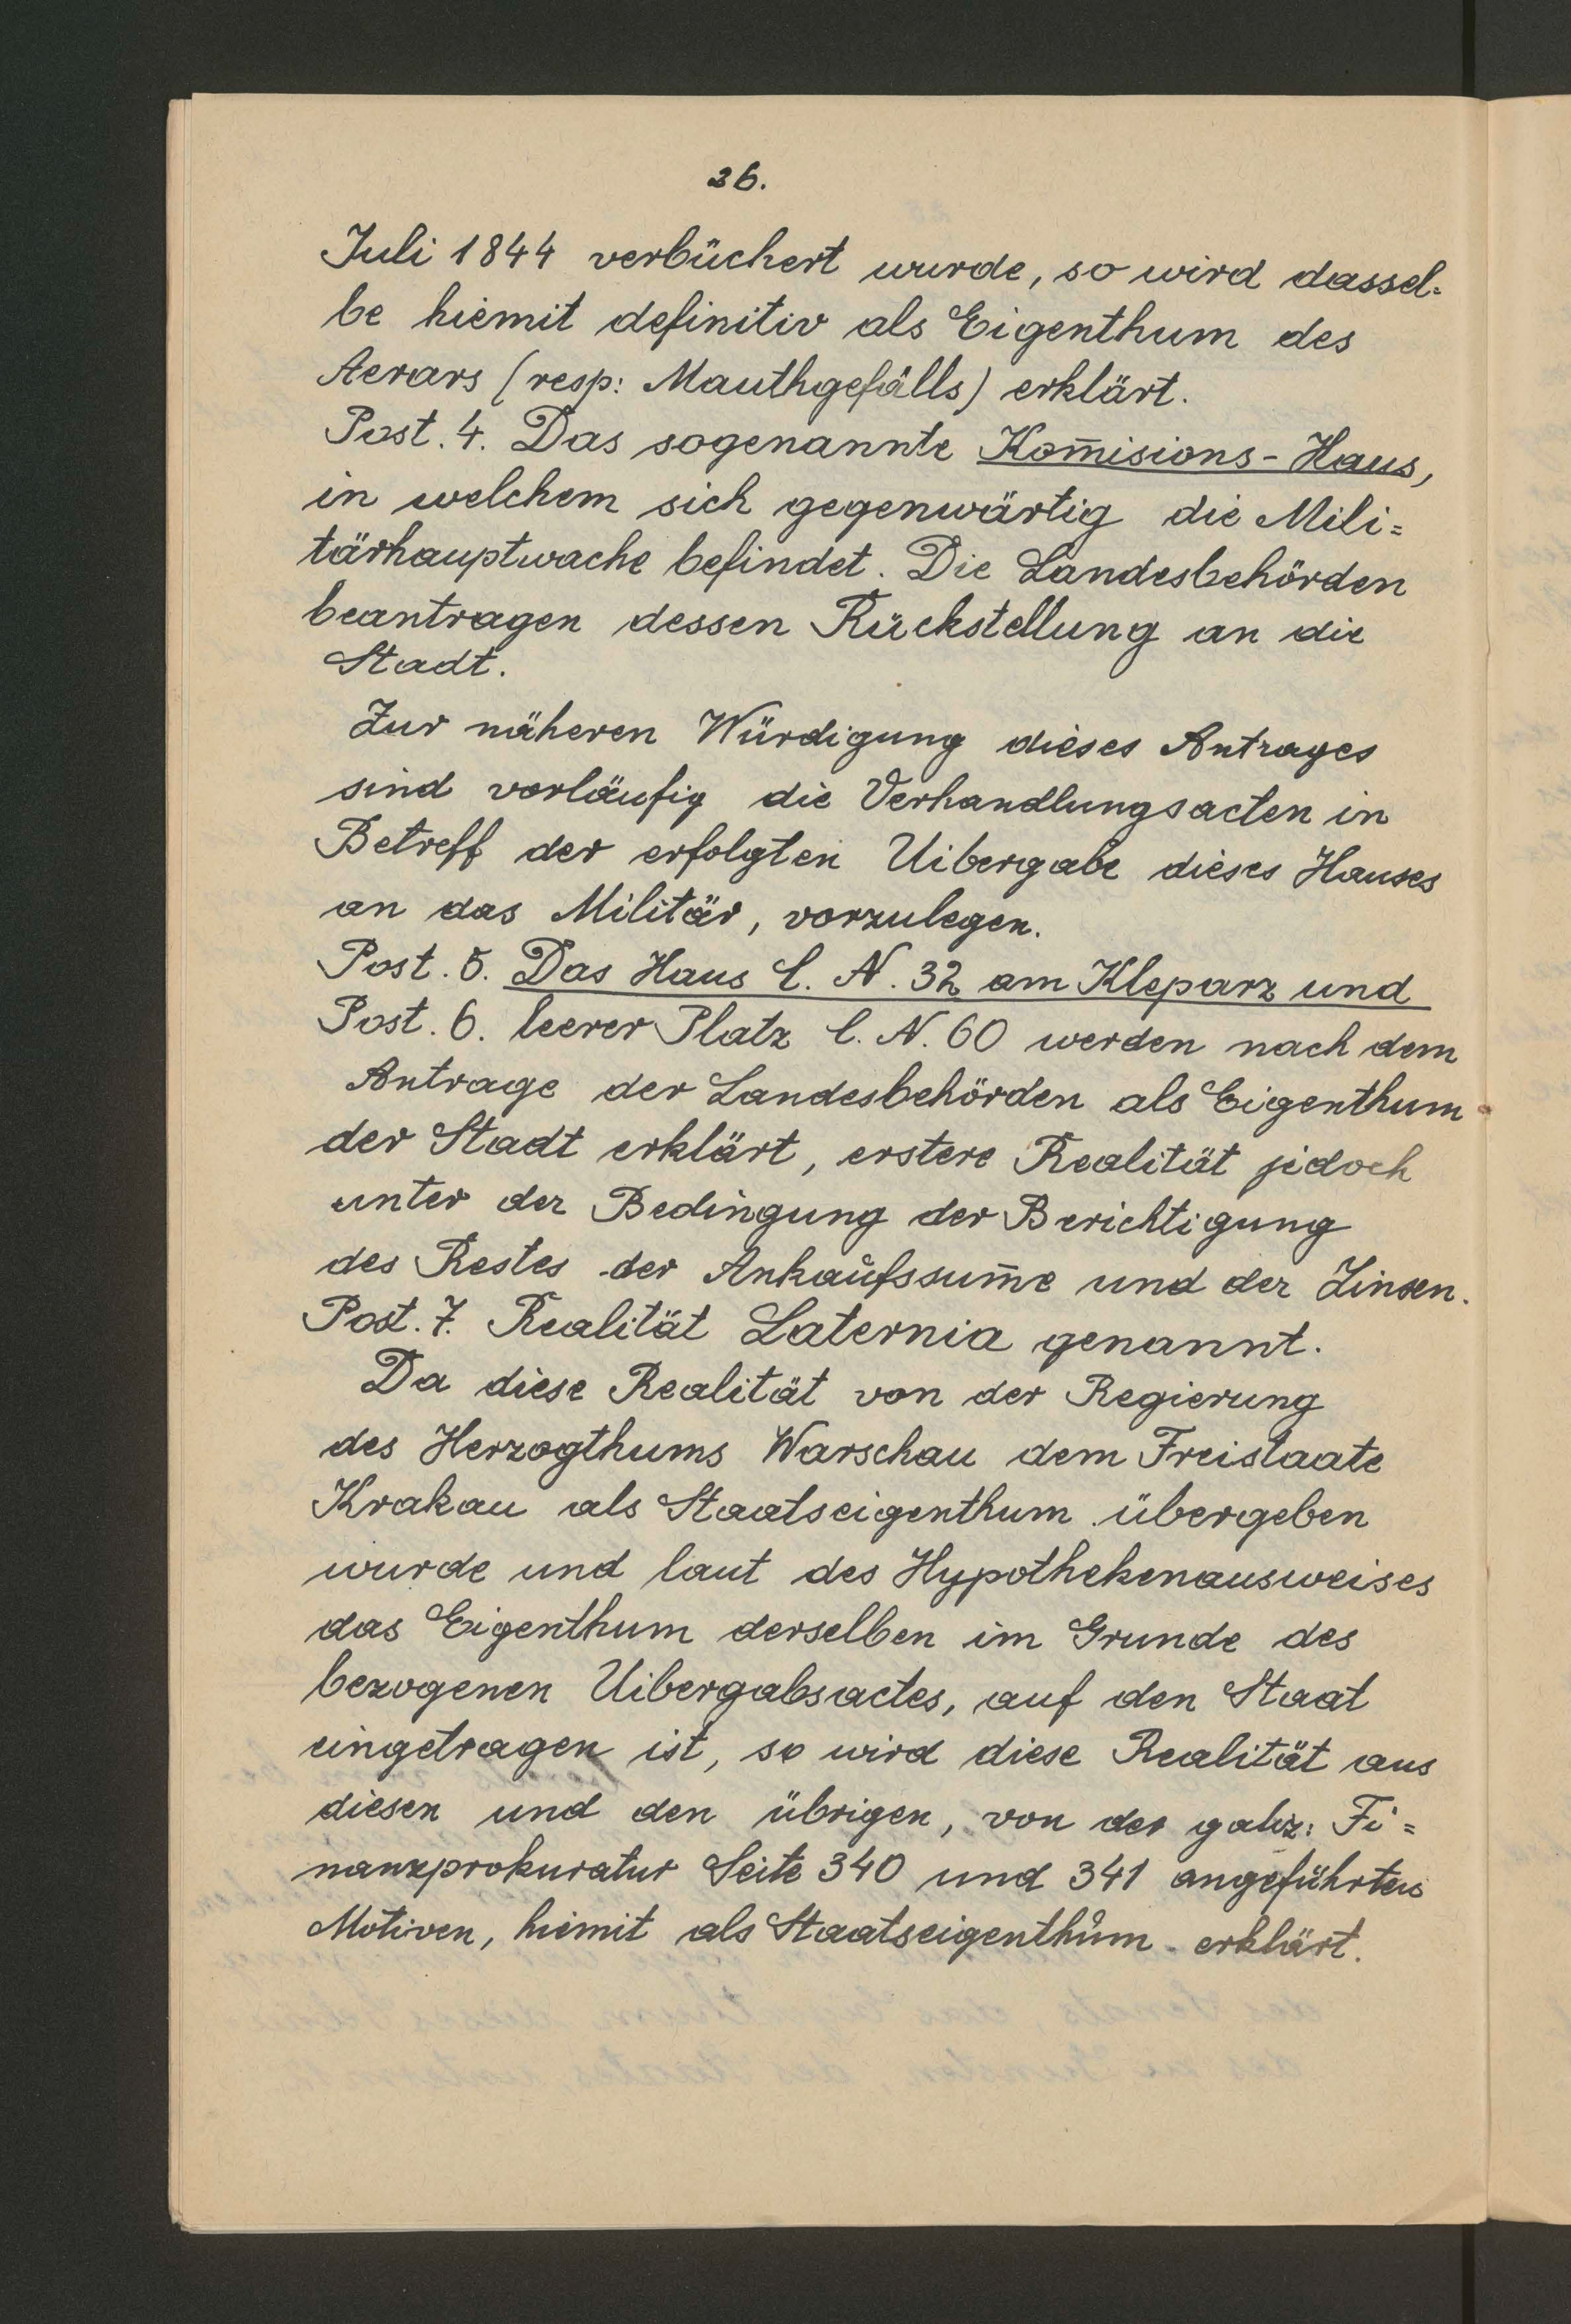 26.
Juli 1844 verbüchert wurde, so wird dassel=
be hiemit definitiv als Eigenthum des
Aerars (resp: Mauthgefälls) erklärt.
Post. 4. Das sogenannte Kom̄isions-Haus,
in welchem sich gegenwärtig die Mili=
tärhauptwache befindet. Die Landesbehörden
beantragen dessen Rückstellung an die
Stadt.
Zur näheren Würdigung dieses Antrages
sind vorläufig die Verhandlungsacten in
Betreff der erfolgten Uibergabe dieses Hauses
an das Militär, vorzulegen.
Post. 5. Das Haus C. N. 32 am Kleparz und
Post. 6. leerer Platz C. N. 60 werden nach dem
Antrage der Landesbehörden als Eigenthum
der Stadt erklärt, erstere Realität jedoch
unter der Bedingung der Berichtigung
des Restes der Ankaufssum̄e und der Zinsen.
Post. 7. Realität Laternia genannt.
Da diese Realität von der Regierung
des Herzogthums Warschau dem Freistaate
Krakau als Staatseigenthum übergeben
wurde und laut des Hypothekenausweises
das Eigenthum derselben im Grunde des
bezogenen Uibergabsactes, auf den Staat
eingetragen ist, so wird diese Realität aus
diesen und den übrigen, von der galiz: Fi=
nanzprokuratur Seite 340 und 341 angeführten
Motiven, hiemit als Staatseigenthum erklärt.